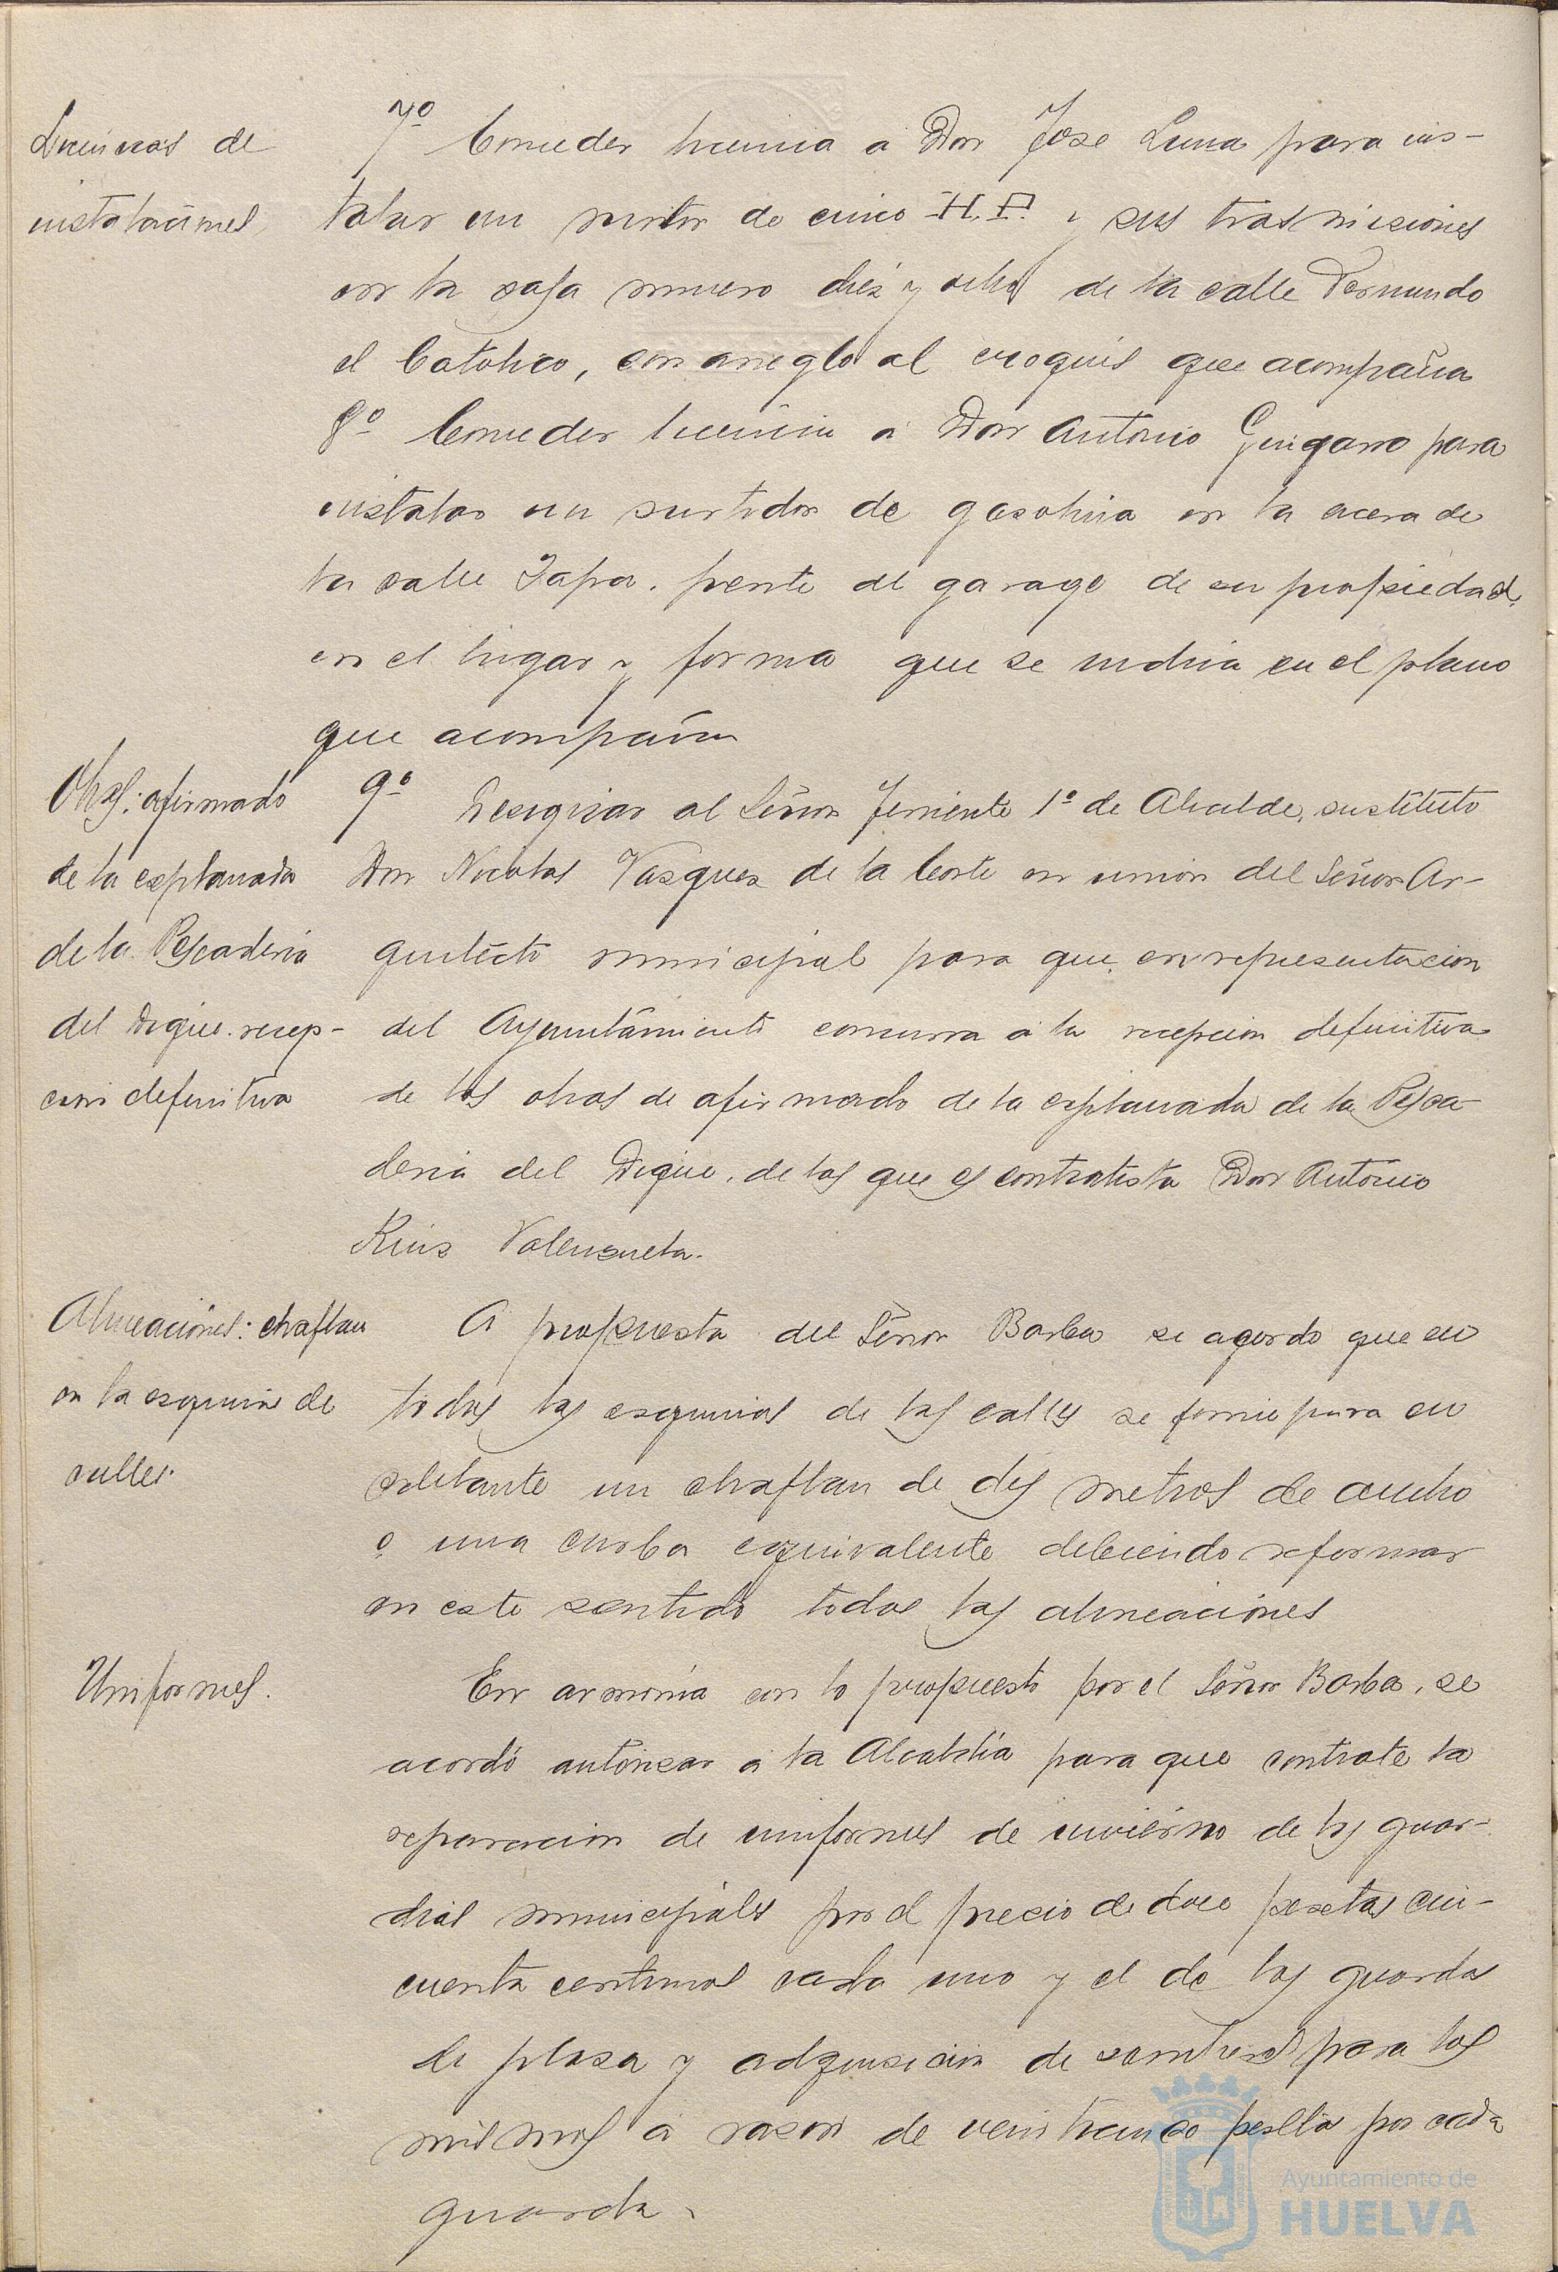 Licencias de
instalaciones
7º Conceder licencia a Don Jose Luna para ins-
talar un motor de cinco H.P. y sus trasmisiones
en la casa numero diez y ocho de la calle Fernando
el Catolico, con arreglo al croquis que acompaña
8º Conceder licencia a Don Antonio Guijarro para
instalar un surtidor de gasolina en la acera de
la calle Zafra, frente al garage de su propiedad,
en el lugar y forma que se indica en el plano
que acompaña
Obras: afirmado
de la explanada
de la Pescaderia
del Dique. recep-
cion definitiva
9º Designar al Señor Teniente 1º de Alcalde, sustituto
Don Nicolas Vasquez de la Corte en union del Señor Ar-
quitecto municipal para que, en representacion
del Ayuntamiento concurra a la recepcion definitiva
de las obras de afirmado de la explanada de la Pesca-
deria del Dique, de las que es contratista Don Antonio
Ruiz Valenzuela.
Alineaciones: chaflan
en la esquina de
calles.
A propuesta del Señor Barba se acordo que en
todas las esquinas de las calles se forme para en
adelante un chaflan de dos metros de ancho
o una curba equivalente debiendo reformar
en este sentido todas las alineaciones
Uniformes.
En armonia con lo propuesto por el Señor Barba, se
acordó autorizar a la Alcaldía para que contrate la
reparacion de uniformes de invierno de los guar-
dias municipales por el precio de doce pesetas cin-
cuenta centimos cada uno y el de los guardas
de plaza y adquisicion de sombreros para los
mismos a razon de veinticinco pesetas por cada
guarda.
Ayuntamiento de
HUELVA